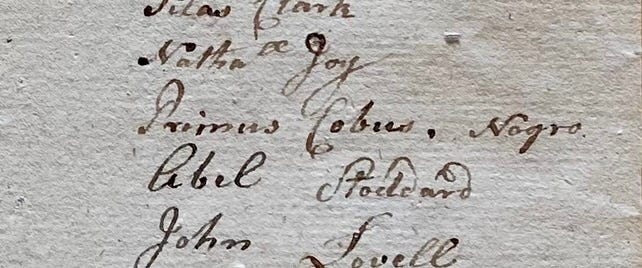 Silas Clark
Natha^el Joy
Primus Cobus, Negro.
Abel Stoddard
John Lovell